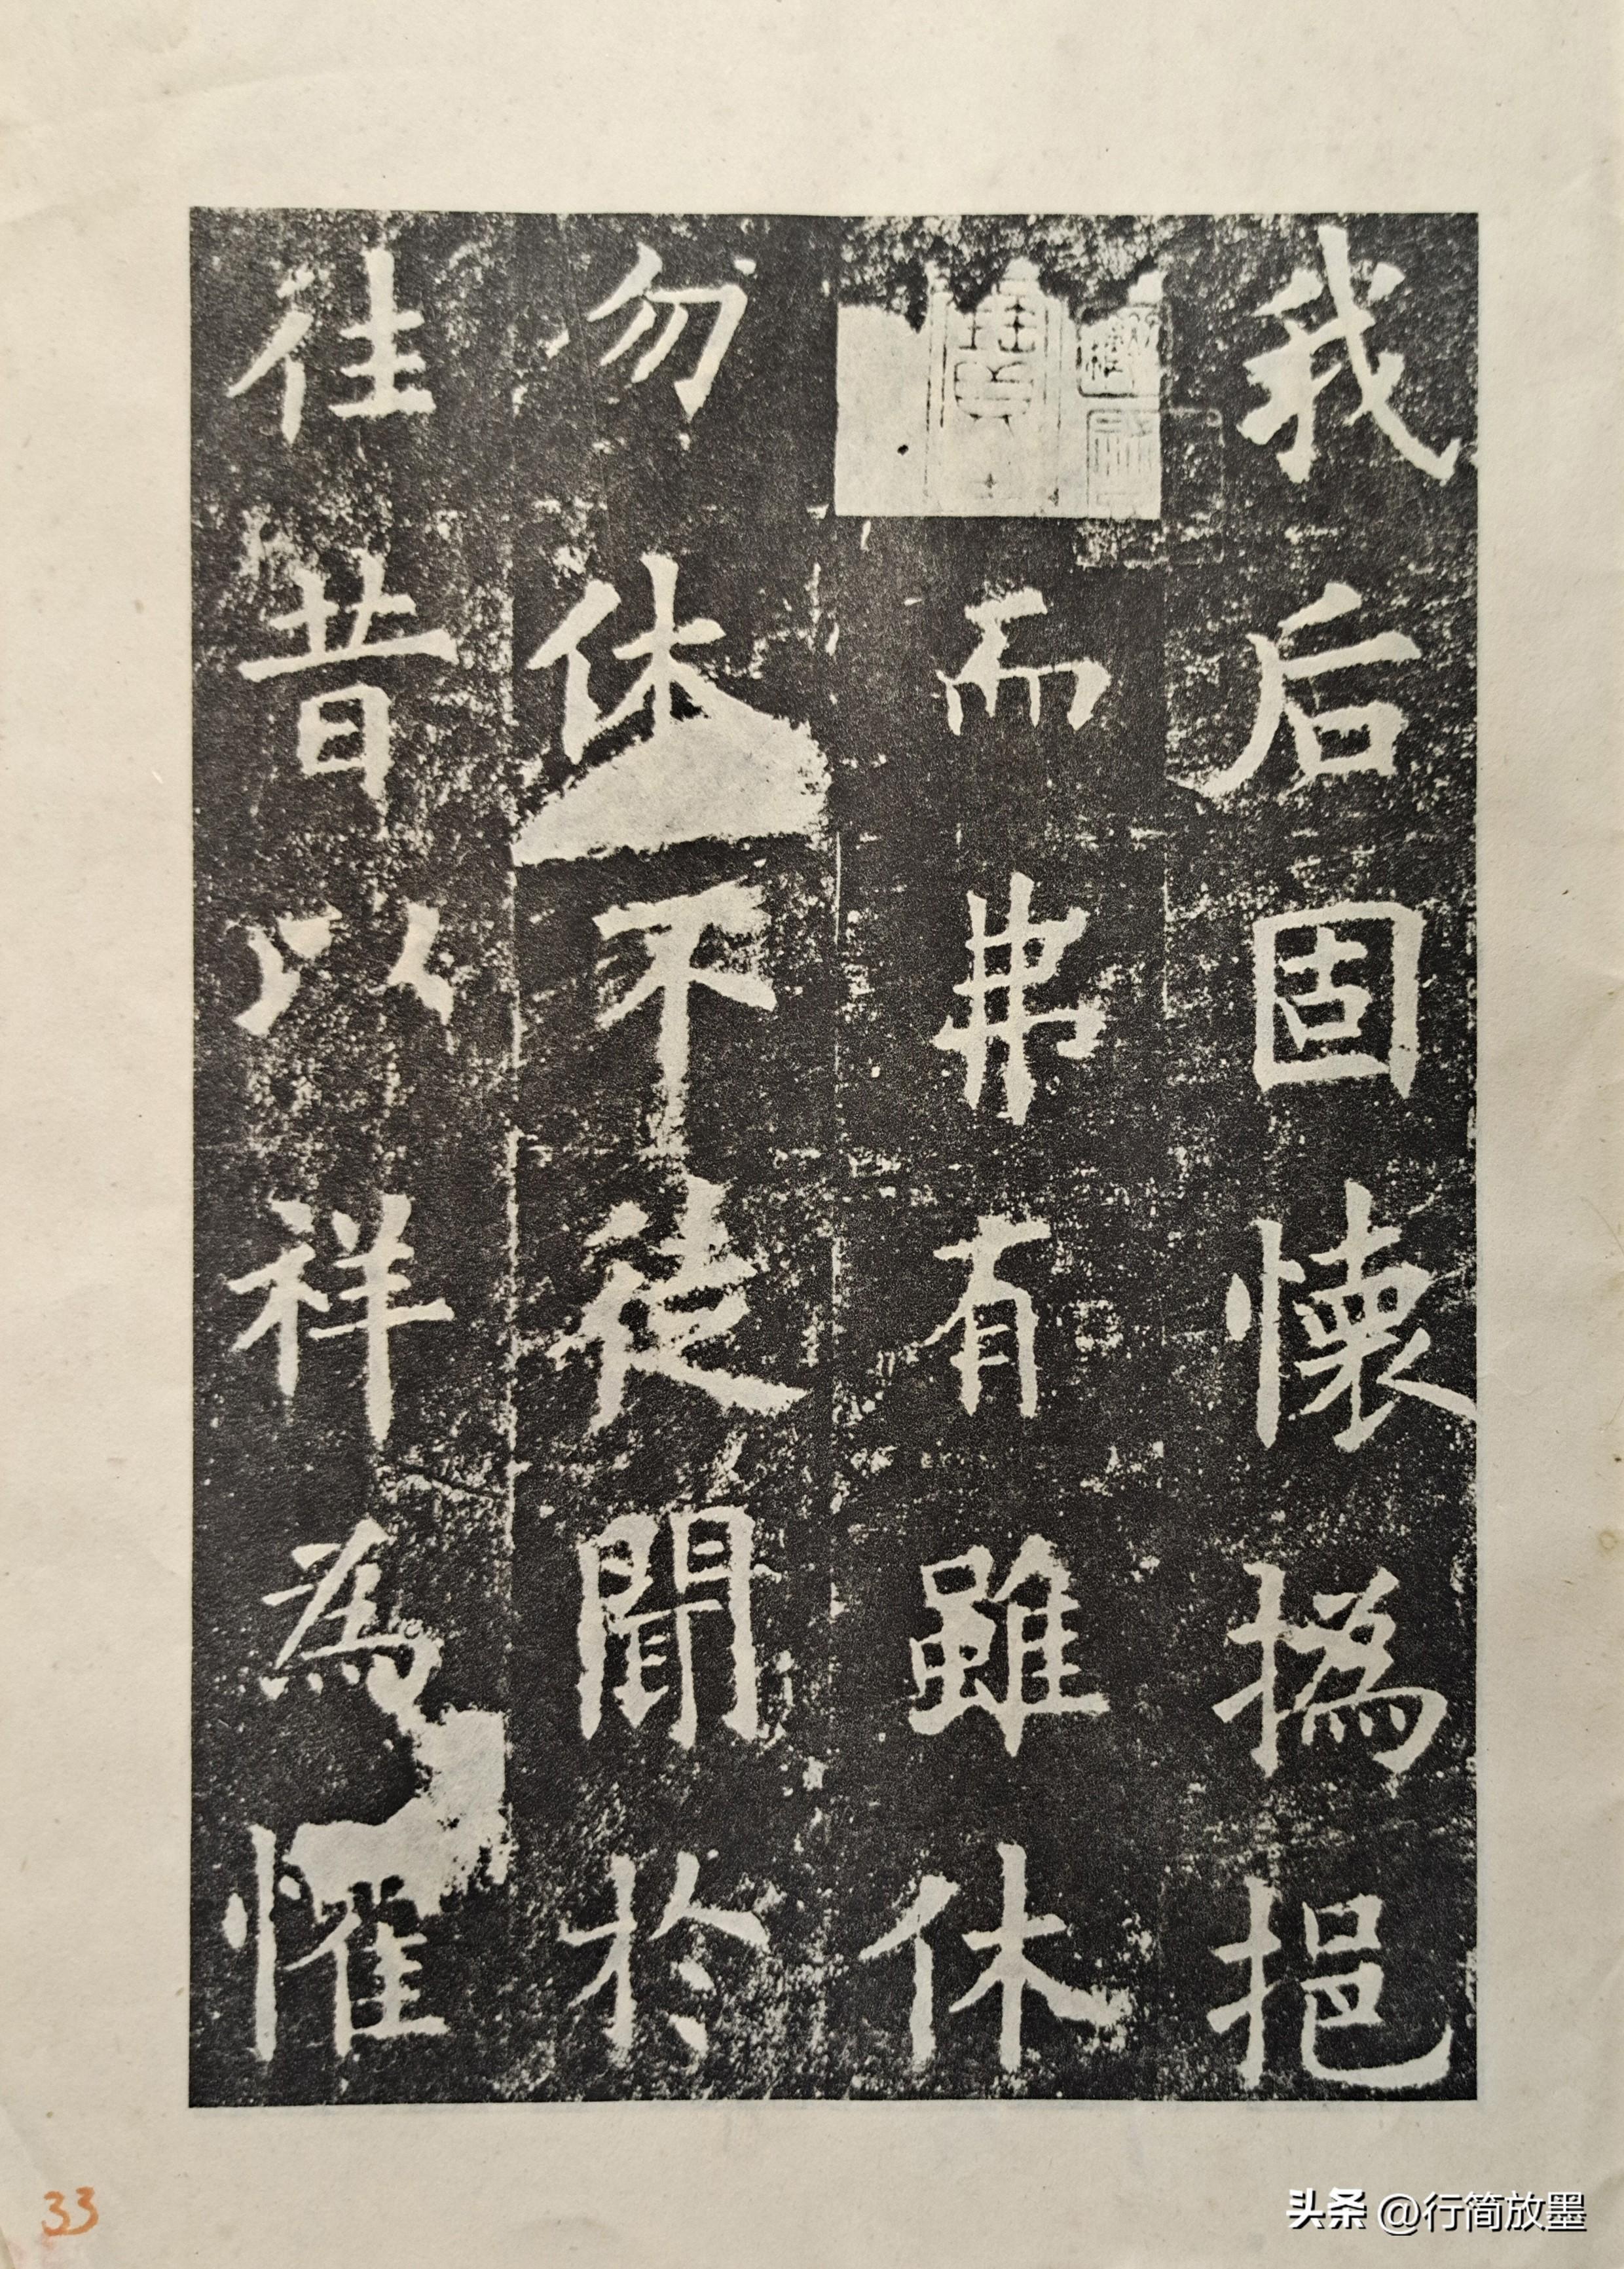 我后固懷撝挹
而弗有雖休
勿休不徒聞於
往昔以祥為懼
33
头条 @行简放墨